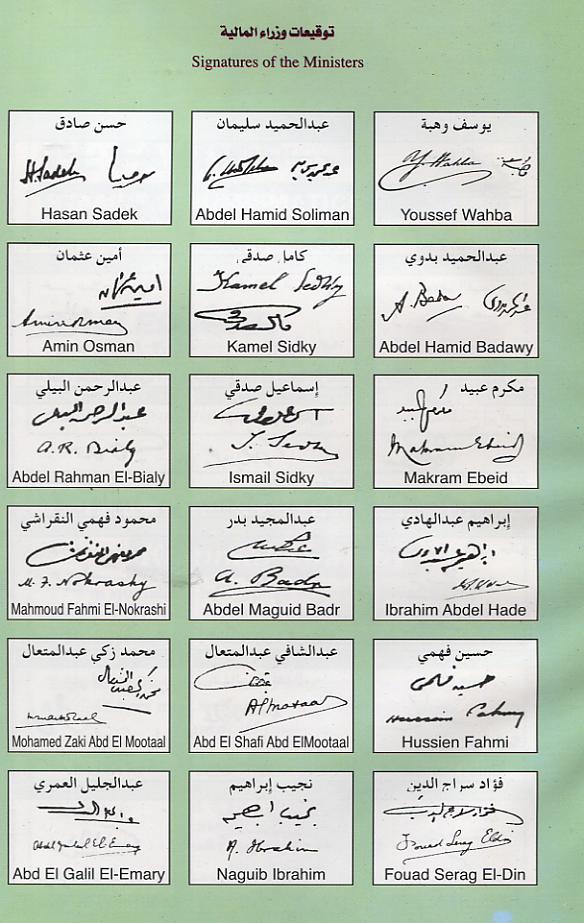 توقيعات وزراء المالية
Signatures of the Ministers
حسن صادق
H. Sadek
Hasan Sadek
عبدالحميد سليمان
Abdel Hamid Soliman
يوسف وهبة
Y. Wahba
Youssef Wahba
أمين عثمان
امين عثمان
Amin Osman
Amin Osman
كامل صدقى
Kamel Sedky
Kamel Sidky
عبدالحميد بدوي
A. Badawy
Abdel Hamid Badawy
عبدالرحمن البيلي
عبد الرحمن البيلى
A.R. Bialy
Abdel Rahman El-Bialy
إسماعيل صدقي
I. Sedky
Ismail Sidky
مكرم عبيد
Makram Ebeid
Makram Ebeid
محمود فهمي النقراشي
M. F. Nokrashy
Mahmoud Fahmi El-Nokrashi
عبدالمجيد بدر
A. Badr
Abdel Maguid Badr
إبراهيم عبدالهادي
Ibrahim Abdel Hade
محمد زكي عبدالمتعال
Mohamed Zaki Abd El Mootaal
عبدالشافي عبدالمتعال
Abd El Shafi Abd ElMootaal
حسين فهمي
حسين فهمى
Hussein Fahmy
Hussien Fahmi
عبدالجليل العمري
Abdel Galil El Emary
Abd El Galil El-Emary
نجيب إبراهيم
نجيب ابراهيم
N. Ibrahim
Naguib Ibrahim
فؤاد سراج الدين
فؤاد سراج الدين
Fouad Serag Eldin
Fouad Serag El-Din